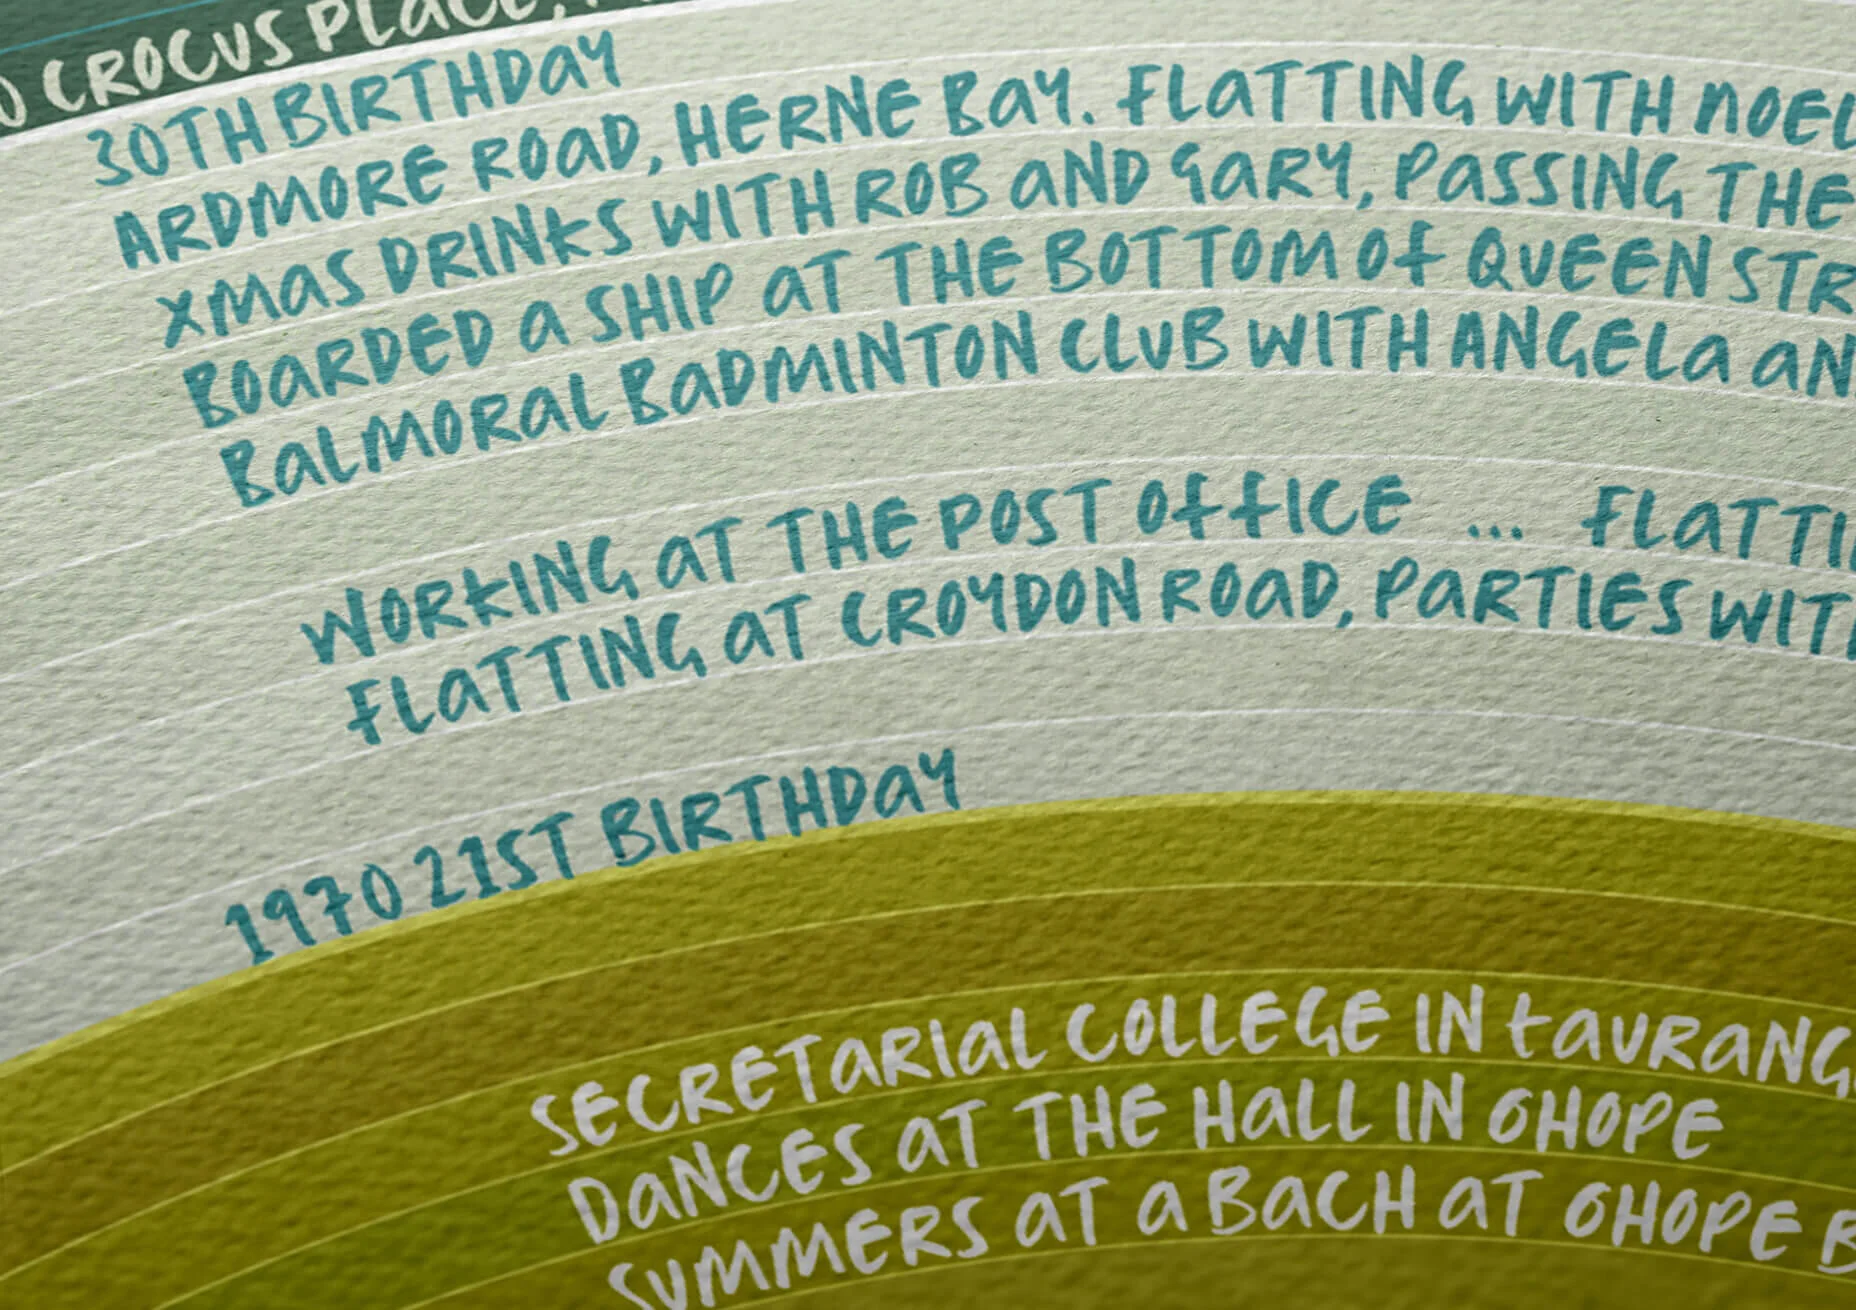 CROCUS PLACE,
30TH BIRTHDAY
ARDMORE ROAD, HERNE BAY. FLATTING WITH NOEL
XMAS DRINKS WITH ROB AND GARY, PASSING THE
BOARDED A SHIP AT THE BOTTOM OF QUEEN STR
BALMORAL BADMINTON CLUB WITH ANGELA AN
WORKING AT THE POST OFFICE ... FLATTI
FLATTING AT CROYDON ROAD, PARTIES WIT
1970 21ST BIRTHDAY
SECRETARIAL COLLEGE IN TAURANG
DANCES AT THE HALL IN OHOPE
SUMMERS AT A BACH AT OHOPE B